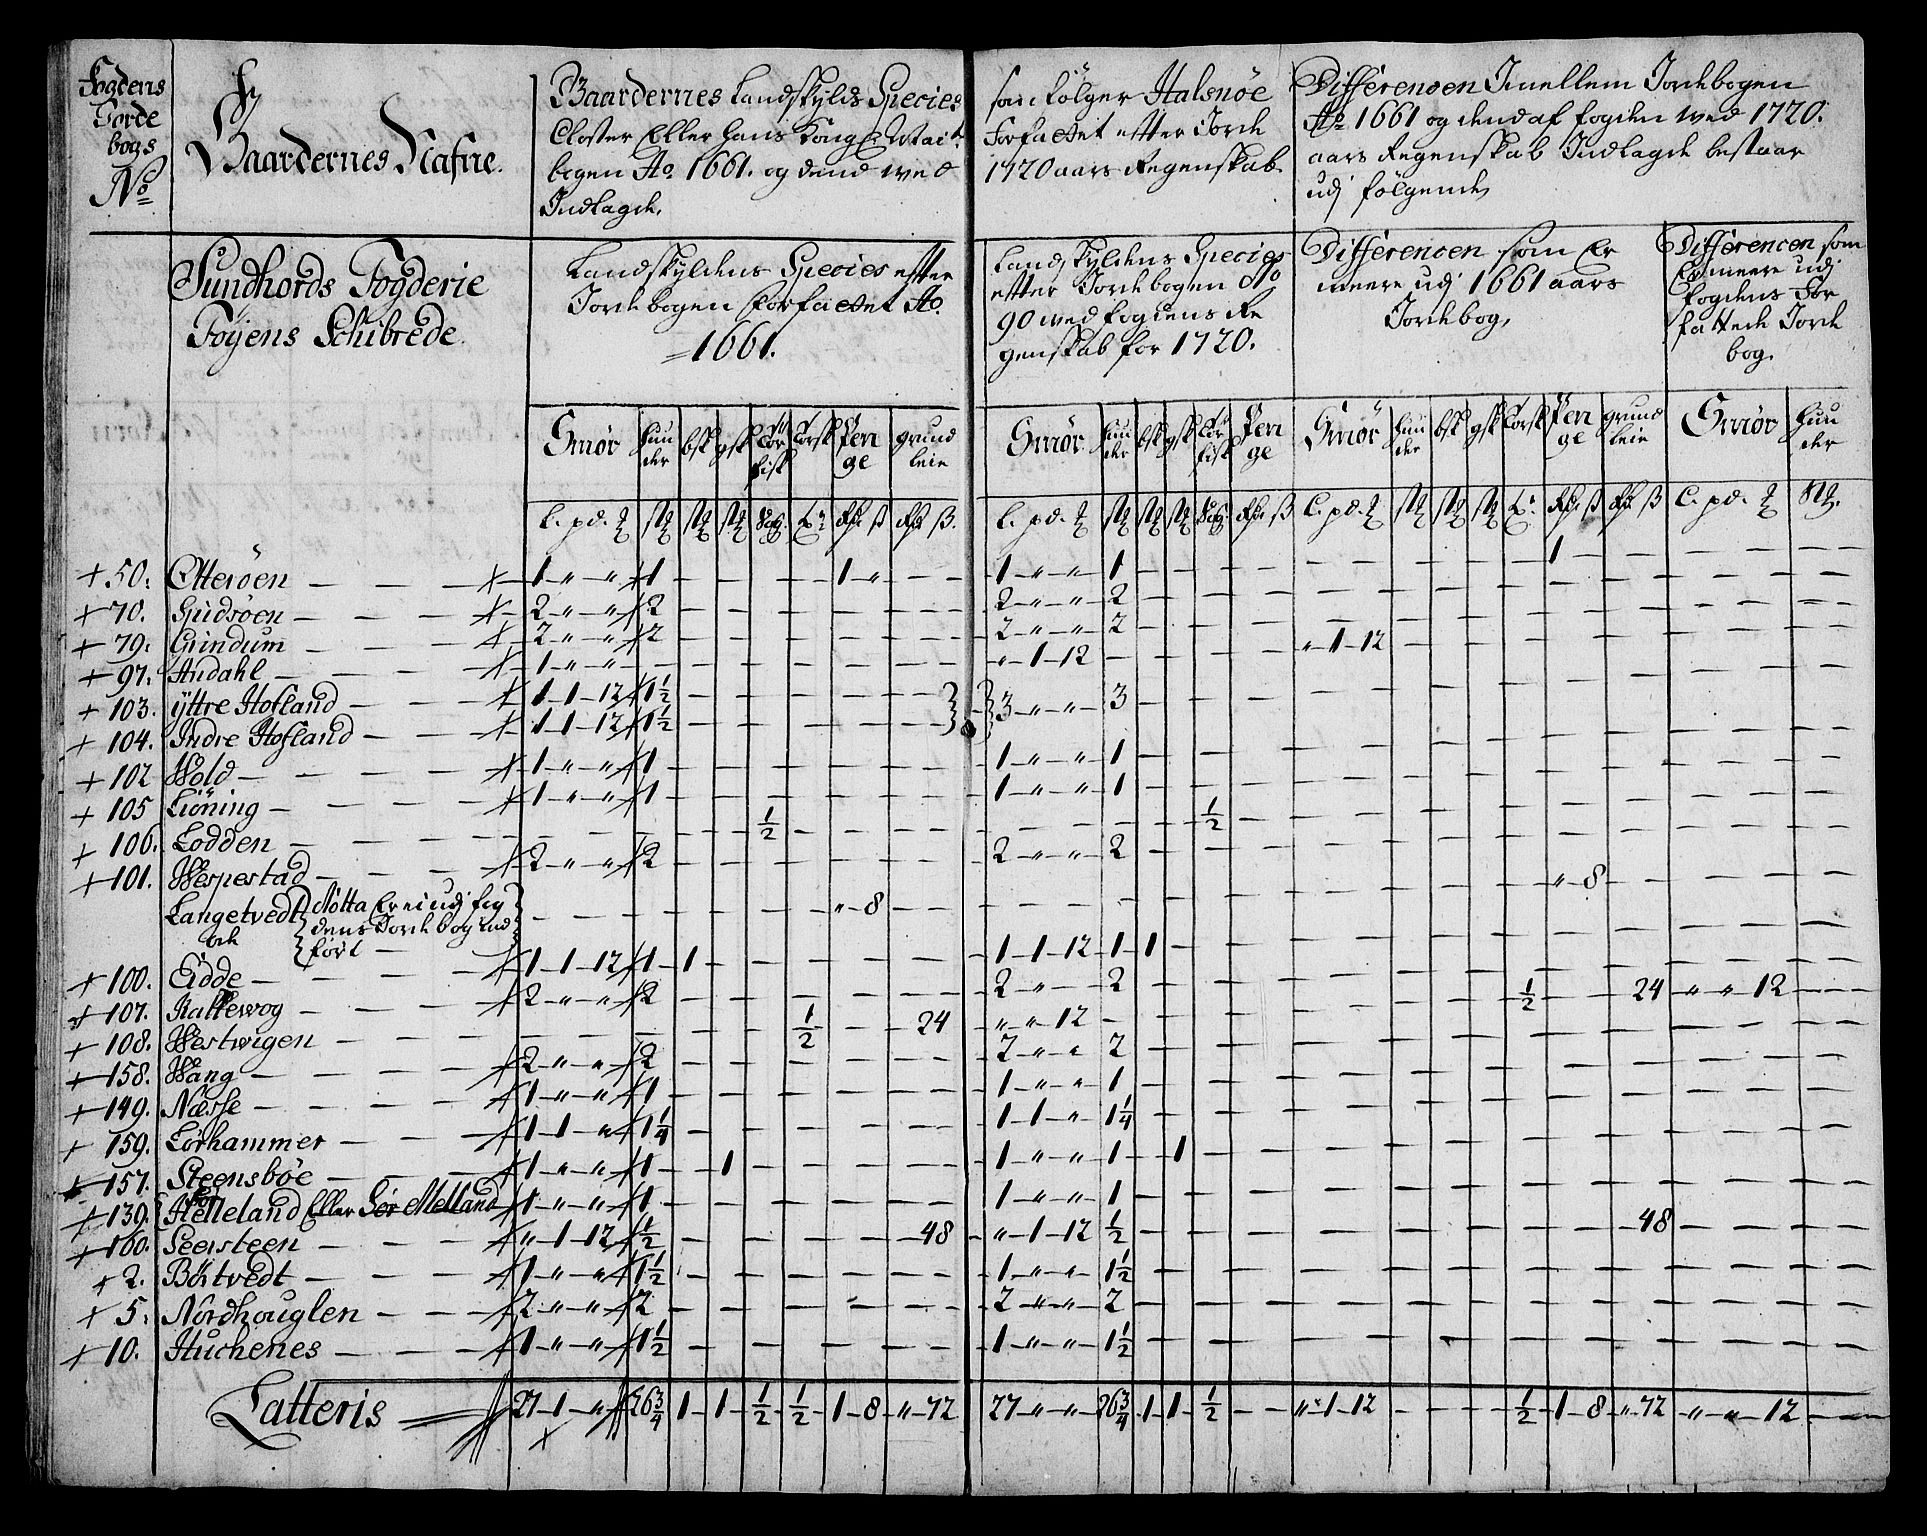 Fogdens
Jorde
bogs
No
Gaardernes Nafne.
Gaardernes Landskylds Species
Closter Eller hans Kongl. Mai.
bogen Ao. 1661. og dend wed
Indlagde,
som følger Halsnöe
forfattet efter Jorde
1720 aars Regenskab.
Differencen Imellem Jordebogen
Ao 1661 og dend af fogden wed 1720.
aars Regenskab Indlagde bestaar
udj følgende,
Sundhords Fogderie
Föÿens Schibrede.
Landskyldens Species efter
Jordebogen forfattet Ao.
1661.
Landskyldens Species
efter Jordebogen No
90 wed fogdens Re
genskab for 1720.
Differencen som Er
meere udj 1661 aars
Jordebog,
Differencen som
Er meere udj
fogdens for
fattede Jorde
bog.
Smör huu der bsk gsk Tör fisk Torsk Pen ge grund leie
Smör huu der bsk gsk Tör fisk Pen ge
Smör huu der bsk gsk Torsk Pen ge grund leie
Smör huu der
+ 50. Otteröen — 1 " " 1 — 1 " — 1 " " 1 — 1 —
+ 70. Spidsöen — 2 " " 2 — 2 " " 2 —
+ 79. Grindum — 2 " " 2 — 2 " " 2 —
+ 97. Andahl — 1 " " — " 1 12 — " 1 12 —
+ 103. ÿttre Hofland — 1 1 12 1½ — } { 3 " " 3 —
+ 104. Indre Hofland — 1 1 12 1½ — }
+ 102 Wold — 1 " " 1 — 1 " " 1 —
+ 105 Liöning — 1 " " 1 — 1 " " 1 —
+ 106. Lodden — ½ — ½ —
+ 101. Wespestad — 2 " " 2 — 2 " " 2 —
Langetvedt Nötta Er ei udj fog — " 8 — " 8 —
och dens Jordebog ind
fört —
+ 100. Eidde — 1 1 12 1 1 — 1 1 12 1 1 —
+ 107. Rattewog — 2 " " 2 — 2 " — 2 —
+ 108. Westwigen — ½ — 24 " " 12 — ½ — 24 " " 12 —
+ 158. Wang — 2 " " 2 — 2 " " 2 —
+ 149. Næsse — 1 " " 1 — 1 " " 1 —
+ 159. Lörhammer — 1 1 " 1¼ — 1 1 " 1¼ —
+ 157. Steensböe — 1 " " 1 — 1 — 1 " " 1 — 1 —
+ 139. Helleland Eller Sör Melland 1 " " 1 — 1 " " 1 —
+ 160. Seersteen — " 1 12 ½ — 48 " 1 12 ½ — 48 —
+ 2. Börtvedt — 1 " " 1½ — 1 " " 1½ —
+ 5. Nordhouglen — 2 " " 2 — 2 " " 2 —
+ 10. Huchenes — 1 " " 1½ — 1 " " 1½ —
Latteris — 27 1 " 26¾ 1 1 ½ ½ 1 8 " 72 27 " " 26¾ 1 1 ½ — " 1 12 — ½ 1 8 " 72 " " 12 —